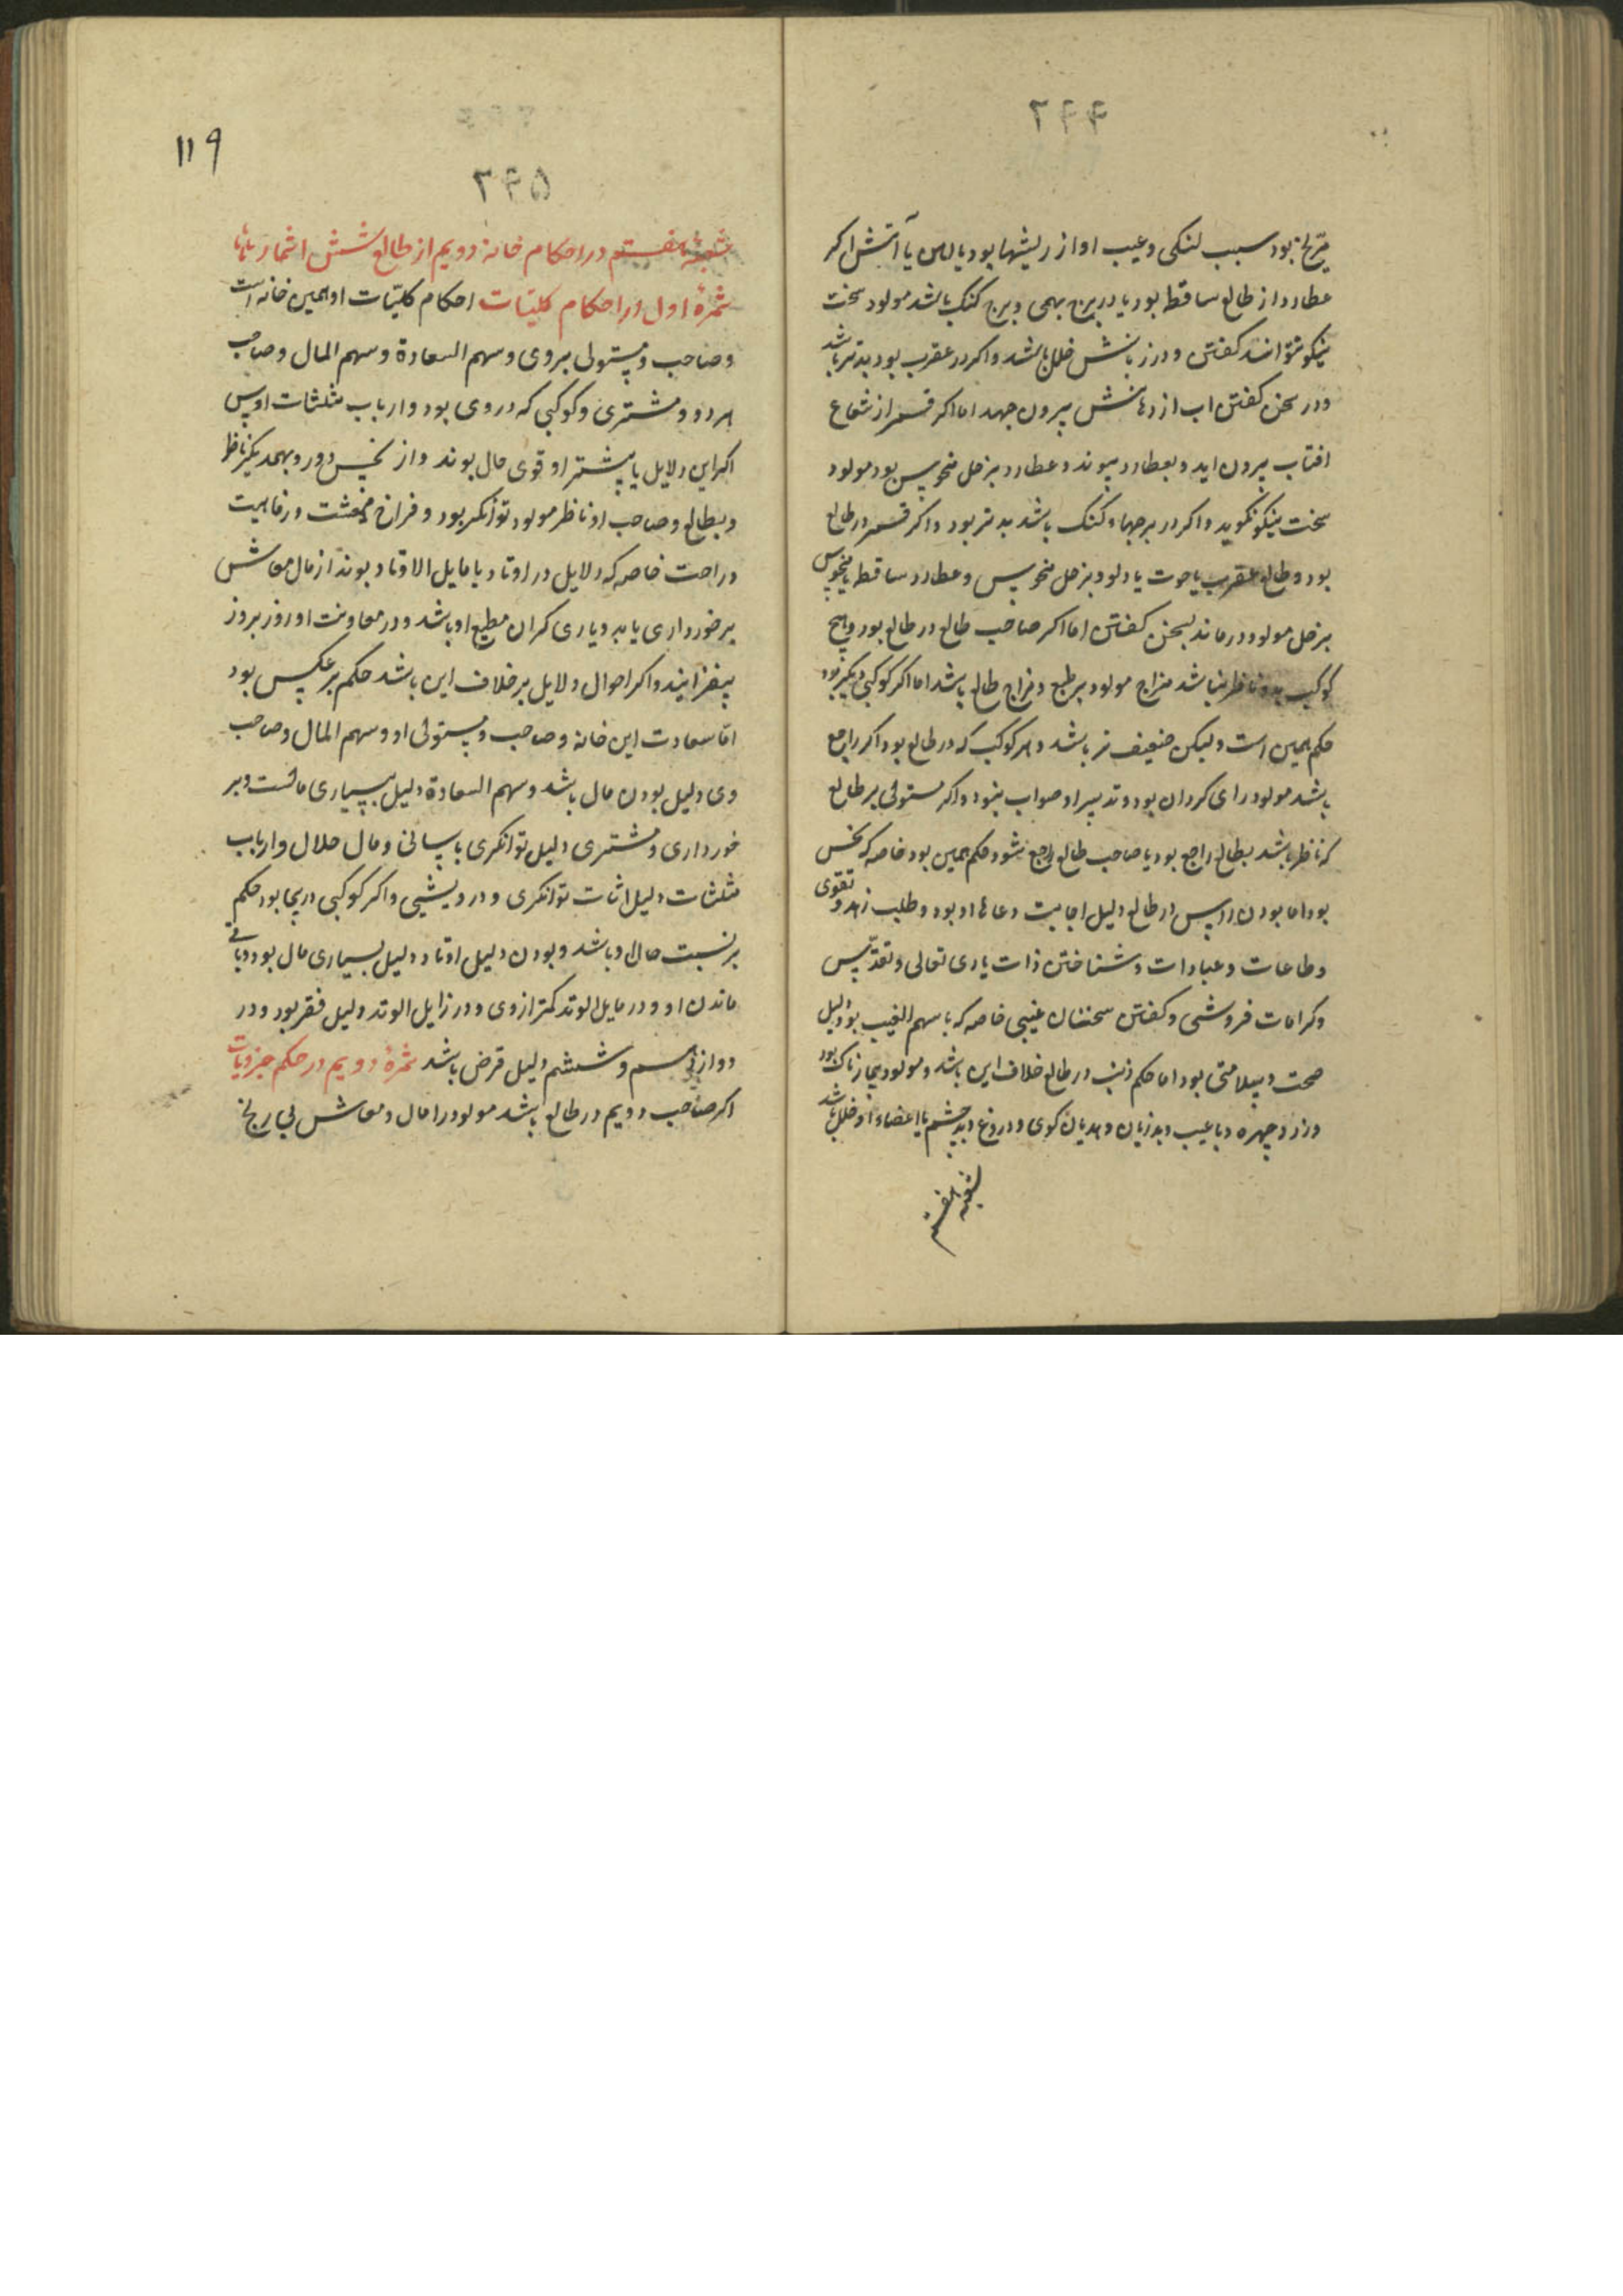 ۲۴۴
مریخ بود سبب لنکی و عیب او از ریشها بود یا آهن یا آتش اکر
عطارد از طالع ساقط بود یا در برج بهمی و برج کنک باشد مولود سخت
نیکو نتواند کفتن و در زبانش خلل باشد و اکر در عقرب بود بدتر باشد
و در سخن کفتن اب از دهانش بیرون جهد اما اکر قمر از شعاع
افتاب بیرون اید و بعطارد پیوند و عطارد بزحل منحوس بود مولود
سخت نیکو نکوید و اکر در برجهاء کنک باشد بدتر بود و اکر قمر در طالع
بود و طالع عقرب یا حوت یا دلو و بزحل منحوس و عطارد ساقط یا منحوس
بزحل مولود درماند بسخن کفتن اما اکر صاحب طالع در طالع بود و هیچ
کوکب بدو ناظر نباشد مزاج مولود بر طبع و مزاج طالع باشد اما اکر کوکبی دیکر بود
حکم همین است ولیکن ضعیف تر باشد و هر کوکب که در طالع بود اکر راجع
باشد مولود رای کردان بود و تدبیر او صواب نبود و اکر مستولی بر طالع
که ناظر باشد بطالع راجع بود یا صاحب طالع راجع شود حکم همین بود خاصه که نحس
بود اما بودن راس در طالع دلیل اجابت دعاهاء او بود و طلب زهد و تقوی
و طاعات و عبادات و شناختن ذات باری تعالی و تقدیس
و کرامات فروشی و کفتن سخنان غیبی خاصه که با سهم الغیب بود دلیل
صحت و سلامتی بود اما حکم ذنب در طالع خلاف این باشد و مولود بیمارناک بود
و زرد چهره و با عیب و بد زبان و هذیان کوی و دروغ و بد چشم یا اعضاء او خلل باشد
شعبه هفتم
۱۱۹
۲۴۵
شعبهٔ هفتم در احکام خانه دویم از طالع شش اثمار
ثمرهٔ اول در احکام کلیّات احکام کلیّات او همین خانه است
و صاحب و مستولی بروی و سهم السعادة و سهم المال و صاحب
هر دو و مشتری و کوکبی که در وی بود و ارباب مثلثات او پس
اکر این دلایل یا بیشتر او قوی حال بوند و از نحس دور و بهمدیکر ناظر
و بطالع و صاحب او ناظر مولود توانکر بود و فراخ معیشت و رفاهیت
و راحت خاصه که دلایل در اوتاد یا مایل الاوتاد بوند از مال معاش
برخورداری یابد و یاری کران مطیع او باشد و در معاونت او روز بروز
بیفزایند و اکر احوال دلایل بر خلاف این باشد حکم بر عکس بود
امّا سعادت این خانه و صاحب و مستولی او و سهم المال و صاحب
وی دلیل بودن مال باشد و سهم السعادة دلیل بسیاری مالست و بر
خورداری و مشتری دلیل توانکری باسانی و مال حلال و ارباب
مثلثات دلیل اثبات توانکری و درویشی و اکر کوکبی دریجا بود حکم
بر نسبت حال او باشد و بودن دلیل اوتاد دلیل بسیاری مال بود و باقی
ماندن او و در مایل الوتد کمتر از وی و در زایل الوتد دلیل فقر بود و در
دوازدهم و ششم دلیل قرض باشد ثمرهٔ دویم در حکم جزویات
اکر صاحب دویم در طالع باشد مولود را مال و معاش بی رنج